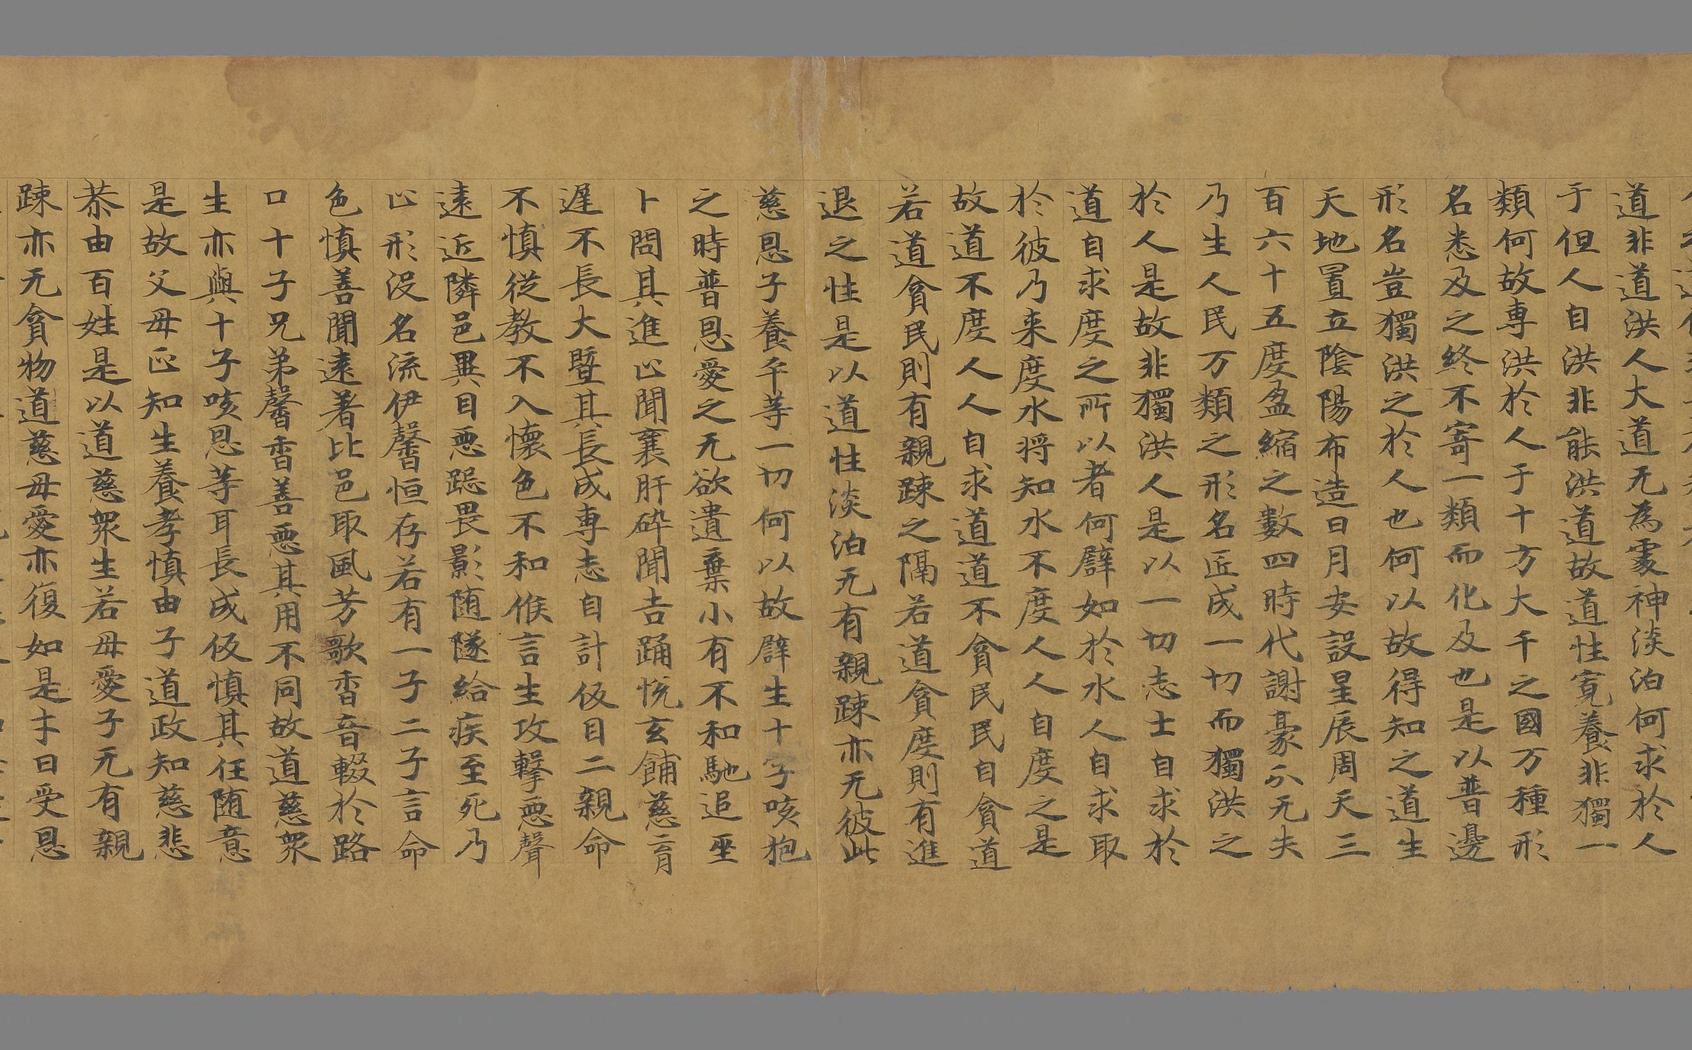 道非道洪人大道无為處神淡泊何求於人
于但人自洪非能洪道故道性寬養非獨一
類何故專洪於人于十方大千之國万種形
名悉及之終不寄一類而化及也是以普邊
形名豈獨洪之於人也何以故得知之道生
天地置立陰陽布造日月安設星辰周天三
百六十五度盈縮之數四時代謝豪尒无失
乃生人民万類之形名匠成一切而獨洪之
於人是故非獨洪人是以一切志士自求於
道自求度之所以者何譬如於水人自求取
於彼乃来度水將知水不度人人自度之是
故道不度人人自求道道不貪民民自貪道
若道貪民則有親踈之隔若道貪度則有進
退之性是以道性淡泊无有親踈亦无彼此
慈恩子養平等一切何以故譬生十子咳抱
之時普恩愛之无欲遺棄小有不和馳追巫
卜問其進止聞衰肝碎聞吉踊悅玄餔慈育
遲不長大暨其長成專志自計仮目二親命
不慎從教不入懷色不和候言生攻擊惡聲
遠近隣邑異目惡跽畏影随墜給疾至死乃
止形没名流伊馨恒存若有一子二子言命
色慎善聞遠著比邑取風芳歌香音輟於路
口十子兄弟馨香善惡其用不同故道慈眾
生亦與十子咳恩等耳長成仮慎其任随意
是故父母止知生養孝慎由子道政知慈悲
恭由百姓是以道慈眾生若母愛子无有親
踈亦无貪物道慈母愛亦復如是才曰受恩